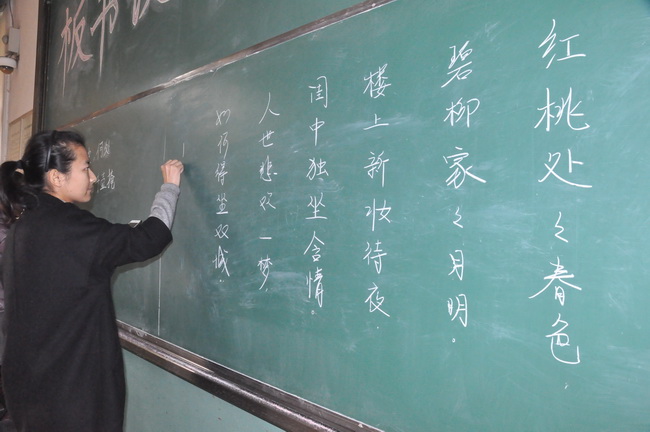 板书
红桃处々春色，
碧柳家々月明。
楼上新妆待夜，
闺中独坐含情。
人世悲欢一梦，
如何得坐双成。